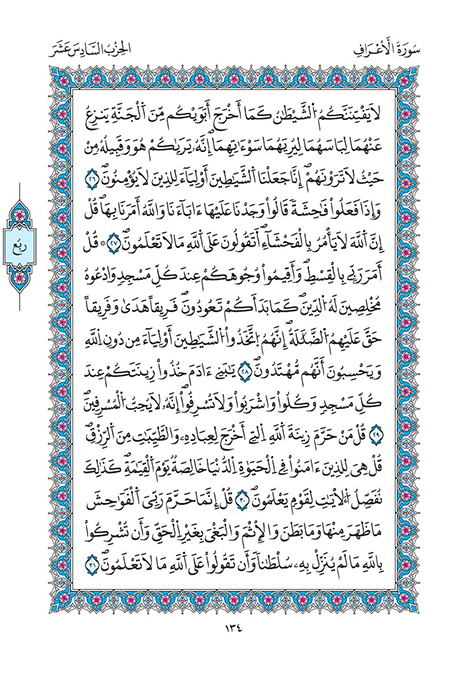 سُورَةُ الْأَعْرَافِ
الحِزْبُ السَّادِسَ عَشَرَ
لَا يَفْتِنَنَّكُمُ الشَّيْطَٰنُ كَمَا أَخْرَجَ أَبَوَيْكُم مِّنَ الْجَنَّةِ يَنزِعُ
عَنْهُمَا لِبَاسَهُمَا لِيُرِيَهُمَا سَوْءَٰتِهِمَا إِنَّهُ يَرَىٰكُمْ هُوَ وَقَبِيلُهُ مِنْ
حَيْثُ لَا تَرَوْنَهُمْ إِنَّا جَعَلْنَا الشَّيَٰطِينَ أَوْلِيَاءَ لِلذِينَ لَا يُؤْمِنُونَ ٢٦
وَإِذَا فَعَلُوا فَٰحِشَةً قَالُوا وَجَدْنَا عَلَيْهَا ءَابَاءَنَا وَاللَّهُ أَمَرَنَا بِهَا قُلْ
إِنَّ اللَّهَ لَا يَأْمُرُ بِالْفَحْشَاءِ اَتَقُولُونَ عَلَى اللَّهِ مَا لَا تَعْلَمُونَ ٢٧ قُلْ
رُبُع
أَمَرَ رَبِّي بِالْقِسْطِ وَأَقِيمُوا وُجُوهَكُمْ عِندَ كُلِّ مَسْجِدٍ وَادْعُوهُ
مُخْلِصِينَ لَهُ الدِّينَ كَمَا بَدَأَكُمْ تَعُودُونَ فَرِيقاً هَدَىٰ وَفَرِيقاً
حَقَّ عَلَيْهِمُ الضَّلَٰلَةُ إِنَّهُمُ اتَّخَذُوا الشَّيَٰطِينَ أَوْلِيَاءَ مِن دُونِ اللَّهِ
وَيَحْسِبُونَ أَنَّهُم مُّهْتَدُونَ ٢٨ يَٰبَنِي ءَادَمَ خُذُوا زِينَتَكُمْ عِندَ
كُلِّ مَسْجِدٍ وَكُلُوا وَاشْرَبُوا وَلَا تُسْرِفُوا إِنَّهُ لَا يُحِبُّ الْمُسْرِفِينَ
٢٩ قُلْ مَنْ حَرَّمَ زِينَةَ اللَّهِ الَّتِي أَخْرَجَ لِعِبَادِهِ وَالطَّيِّبَٰتِ مِنَ الرِّزْقِ
قُلْ هِيَ لِلذِينَ ءَامَنُوا فِي الْحَيَوٰةِ الدُّنْيَا خَالِصَةٌ يَوْمَ الْقِيَٰمَةِ كَذَٰلِكَ
نُفَصِّلُ الْأَيَٰتِ لِقَوْمٍ يَعْلَمُونَ ٣٠ قُلْ إِنَّمَا حَرَّمَ رَبِّيَ الْفَوَٰحِشَ
مَا ظَهَرَ مِنْهَا وَمَا بَطَنَ وَالْإِثْمَ وَالْبَغْيَ بِغَيْرِ الْحَقِّ وَأَن تُشْرِكُوا
بِاللَّهِ مَا لَمْ يُنَزِّلْ بِهِ سُلْطَٰناً وَأَن تَقُولُوا عَلَى اللَّهِ مَا لَا تَعْلَمُونَ ٣١
١٣٤